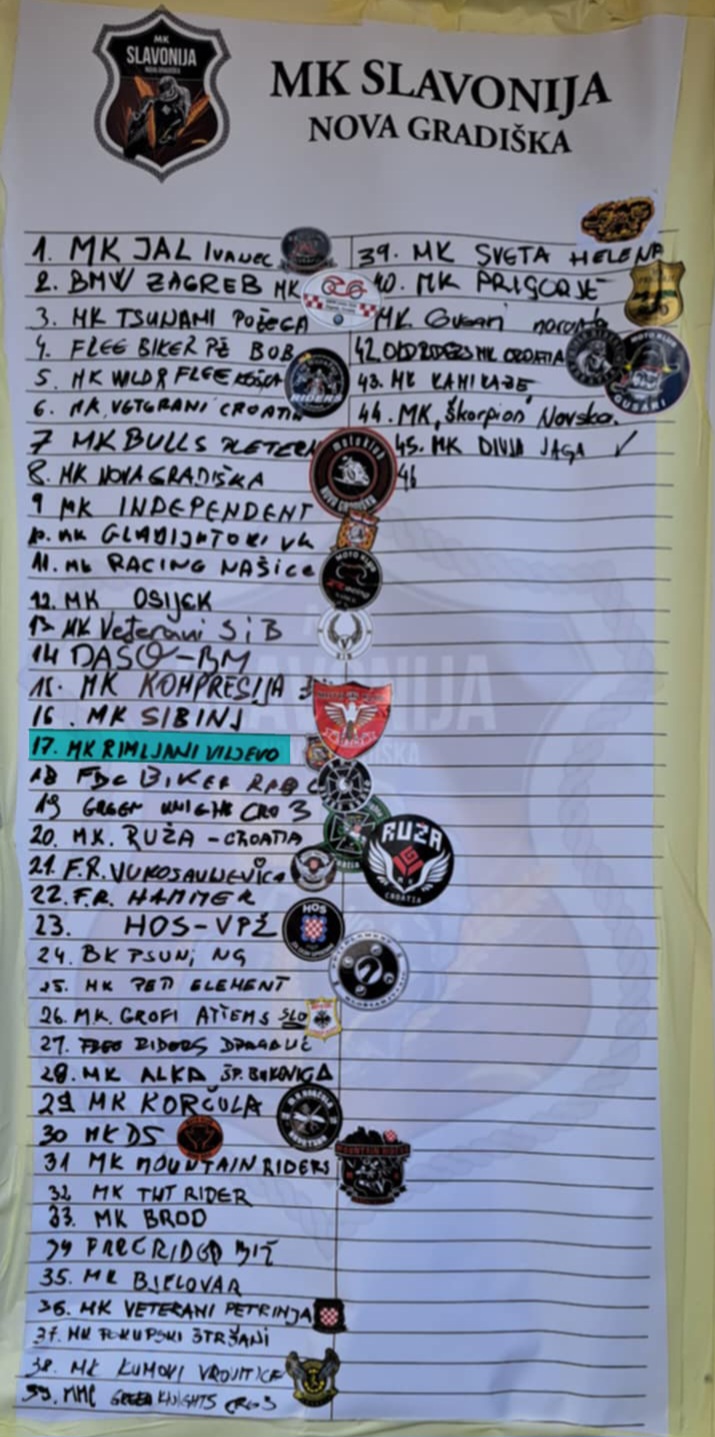 MK
SLAVONIJA
NOVA GRADIŠKA
MK SLAVONIJA
NOVA GRADIŠKA
1. MK JAL IVANEC
2. BMW ZAGREB MK
3. MK TSUNAMI POŽEGA
4. FREE BIKER PŽ BOB
5. MK WILD & FREE
6. MK VETERANI CROATIA
7 MK BULLS PLETERN
8. MK NOVA GRADIŠKA
9 MK INDEPENDENT
10. MK GLADIJATORI VK
11. MK RACING NAŠICE
12. MK OSIJEK
13. MK Veterani SiB
14 DASO-BM
15. MK KOMPRESIJA
16. MK SIBINJ
17. MK RIMLJANI VILJEVO
18 FDC BIKER
19 GREEN KNIGHTS CRO 3
20. MK. RUŽA - CROATIA
21. F.R. VUKOSAVLJEVICA
22. F.R. HAMMER
23. HOS-VPŽ
24. BK PSUNJ NG
25. MK PETI ELEMENT
26. M.K. GROFI ATTEMS SLO
27. FREE RIDERS DRAGALIĆ
28. MK ALKA ŠP. BUKOVICA
29 MK KORČULA
30 MK DS
31 MK MOUNTAIN RIDERS
32 MK TNT RIDER
33. MK BROD
34
35. MK BJELOVAR
36. MK VETERANI PETRINJA
37. MK POKUPSKI
38. MK KUMOVI VROVITICE
39. MMC GREEN KNIGHTS CRO 3
39. MK SVETA HELENA
40. MK PRIGORJE
MK Gusari
42. OLD RIDERS MK CROATIA
43. MK KAMIKAZE
44. MK, Škorpion Novska.
45. MK DIVJA JAGA ✓
46
RIDERS
moto klub
NOVA GRADIŠKA
MOTO KLUB
RUŽA
CROATIA
HOS
MOUNTAIN RIDERS
MOTO KLUB
GUSARI